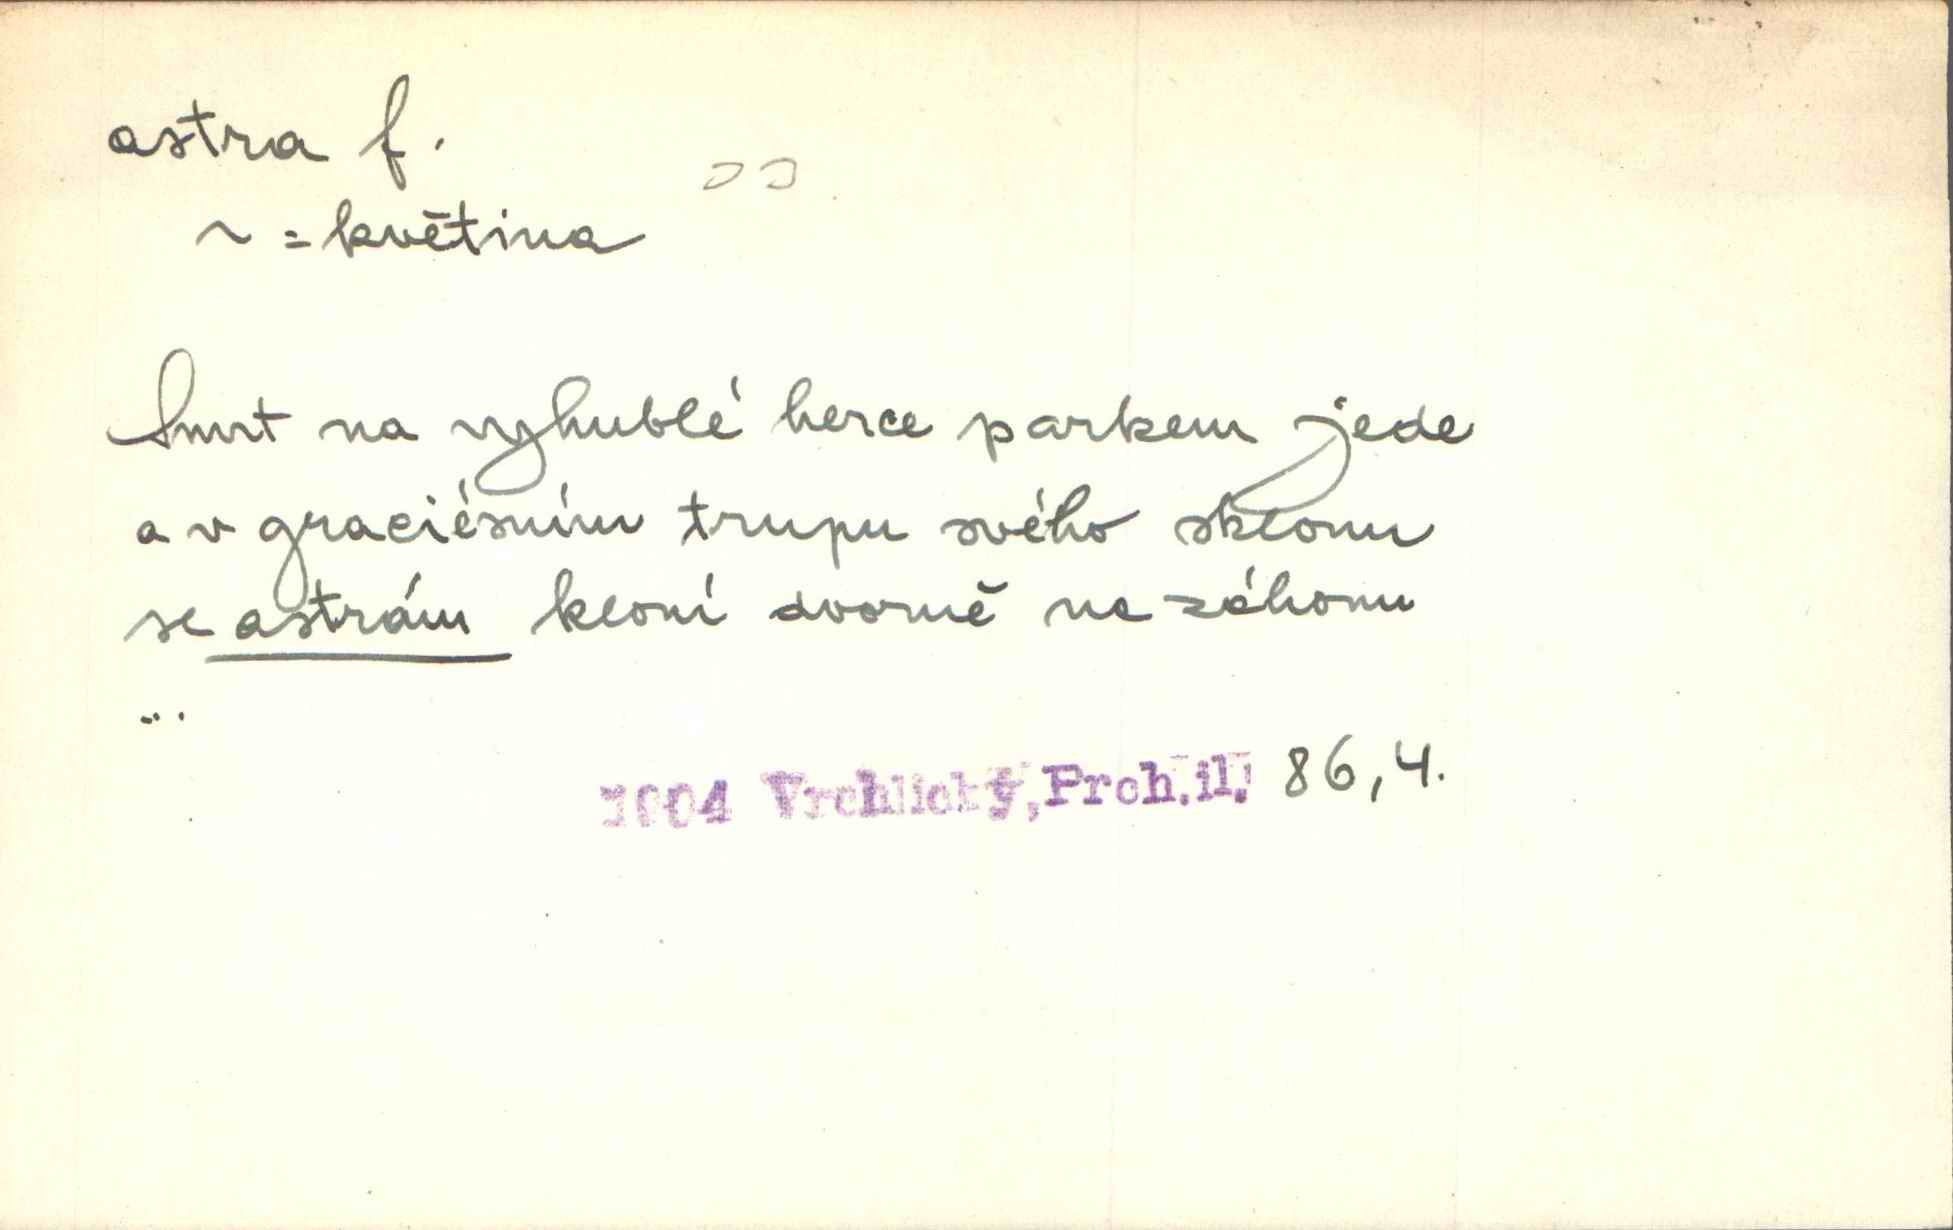 astra f.
~ = květina
Smrt na vyhublé herce parkem jede
a v graciésním trupu svého sklonu
se astrám kloní dvorně na záhonu
...
1904 Vrchlický, Proh. il. 86,4.